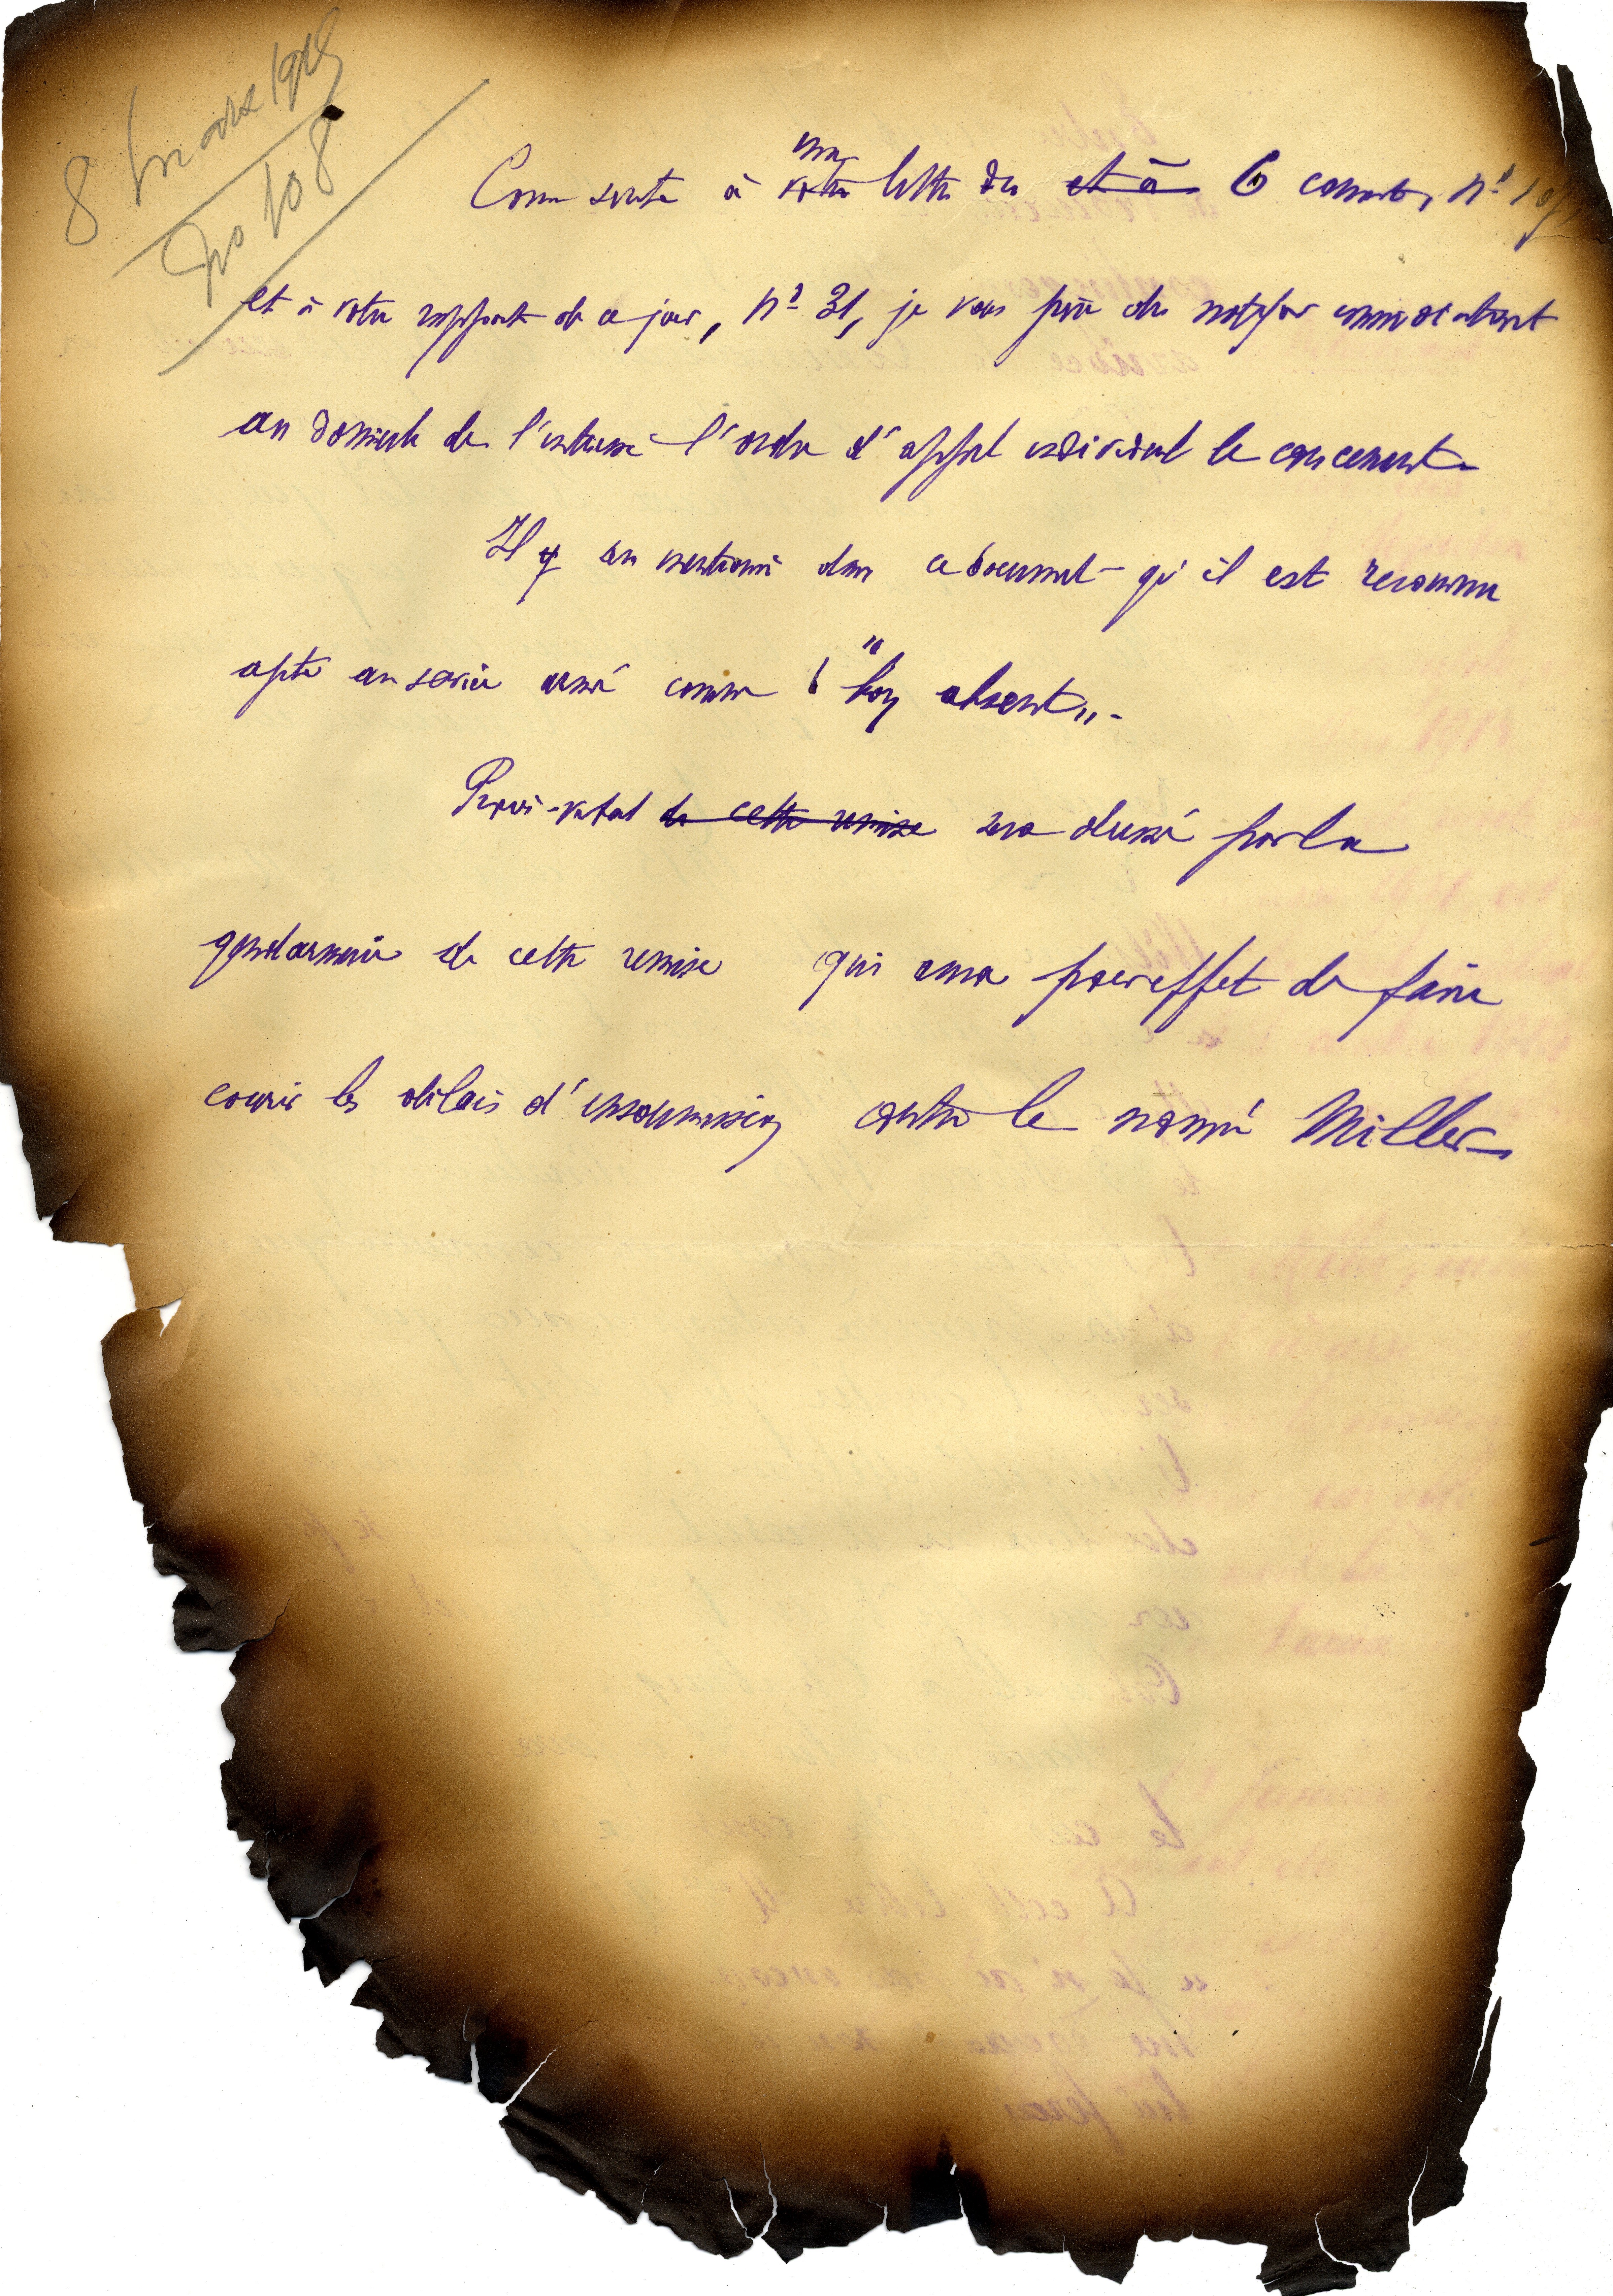 8 mars 1918
No 108
Comme suite à ma votre lettre du et à 6 courant, n°
et à votre rapport de ce jour, n° 31, je vous prie de notifier immédiatement
au domicile de l'intéressé l'ordre d'appel individuel le concernant.
Il y sera mentionné dans ce document qu'il est reconnu
apte au service armé comme "bon absent".
Procès-verbal de cette remise sera dressé par la
gendarmerie de cette remise qui aura pour effet de faire
courir les délais d'insoumission contre le nommé Miller